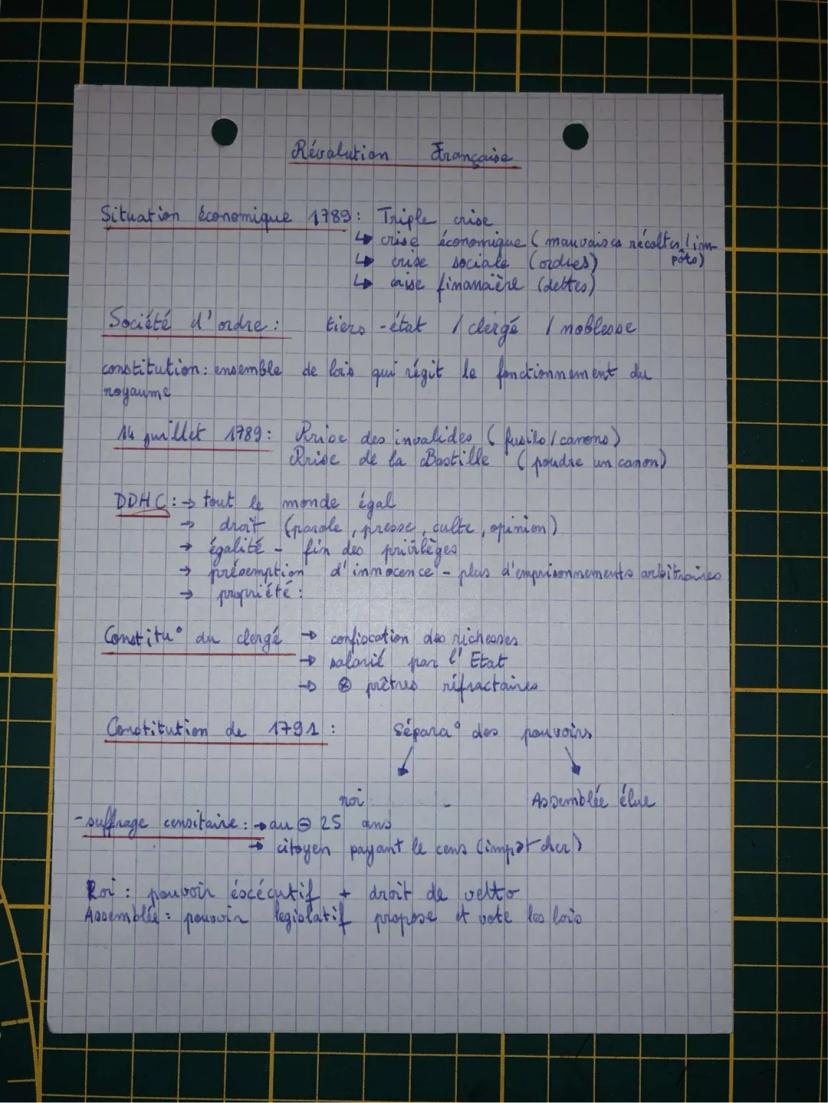 Révolution Française
Situation économique 1789 : Triple crise
↳ crise économique (mauvaises récoltes / im-
pôts)
↳ crise sociale (ordres)
↳ crise financière (dettes)
Société d'ordre : tiers-état / clergé / noblesse
constitution : ensemble de lois qui régit le fonctionnement du
royaume
14 juillet 1789 : Prise des invalides (fusils / canons)
Prise de la Bastille (poudre un canon)
DDHC : → tout le monde égal
→ droit (parole, presse, culte, opinion)
→ égalité - fin des privilèges
→ présemption d'innocence - plus d'emprisonnements arbitraires
→ propriété :
Constitu° du clergé → confiscation des richesses
→ salarié par l'Etat
→ ⊗ prêtres réfractaires
Constitution de 1791 : Sépara° des pouvoirs
roi - Assemblée élue
- suffrage censitaire : → au ⊖ 25 ans
→ citoyen payant le cens (impôt cher)
Roi : pouvoir éxécutif + droit de vetto
Assemblée : pouvoir legislatif propose et vote les lois